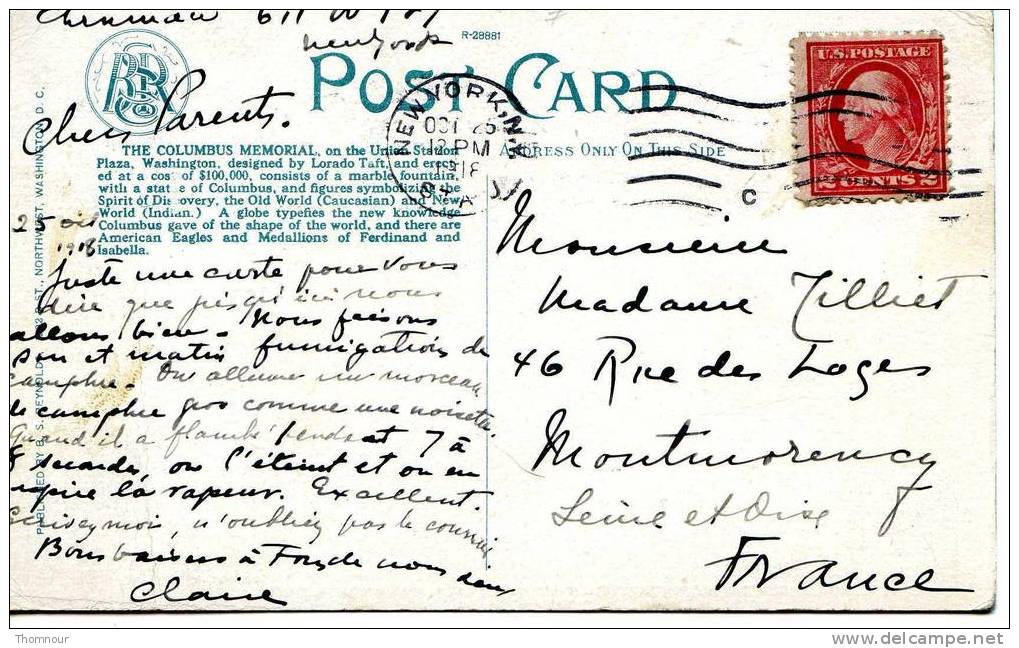 611 W
New York
R-28881
POST CARD
Chers Parents.
NEW YORK, N.Y.
OCT 25
12 PM
1918
THE COLUMBUS MEMORIAL, on the Union Station
Plaza, Washington, designed by Lorado Taft, and erect-
ed at a cost of $100,000, consists of a marble fountain,
with a statue of Columbus, and figures symbolizing the
Spirit of Discovery, the Old World (Caucasian) and New
World (Indian.) A globe typefies the new knowledge
Columbus gave of the shape of the world, and there are
American Eagles and Medallions of Ferdinand and
Isabella.
ADDRESS ONLY ON THIS SIDE
U.S. POSTAGE
2 CENTS 2
C
25 oct
1918
Juste une carte pour vous
dire que jusqu'ici nous
allons bien. Nous faisons
soir et matin fumigations de
camphre. On allume un morceau
de camphre gros comme une noisette.
Quand il a flambé pendant 7 à
8 secondes, on l'éteint et on en
aspire la vapeur. Excellent.
Ecrivez moi, n'oubliez pas le courrier
Bons baisers à de nous deux
Claire
Monsieur
Madame Tilliet
46 Rue des Loges
Montmorency
Seine et Oise
France
PUBLISHED BY B. S. REYNOLDS ST., NORTHWEST, WASHINGTON, D. C.
Thomnour
www.delcampe.net